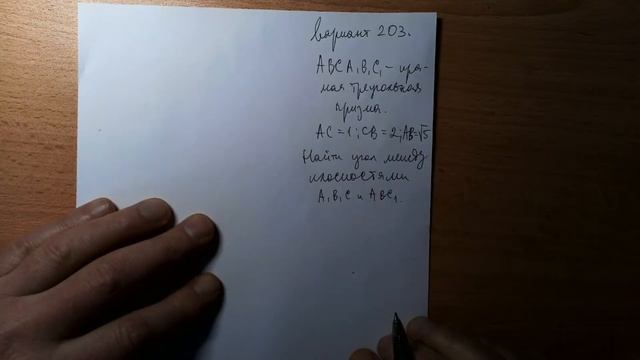 Вариант 203.
ABCA₁B₁C₁ - пря-
мая треугольная
призма.
AC = 1; CB = 2; AB = √5
Найти угол между
плоскостями
A₁B₁C и ABC₁.